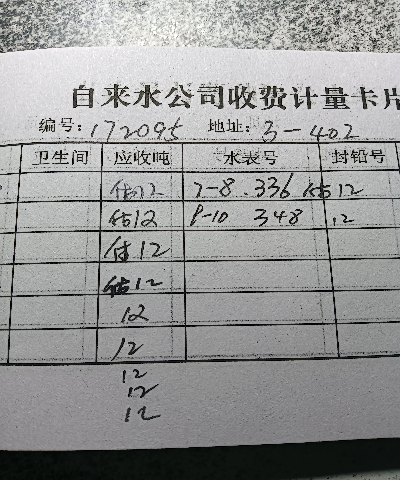 自来水公司收费计量卡片
编号：172095 地址：3-402
卫生间 应收吨 水表号 封铅号
估12 7-8.336 估12
估12 8-10 348 .12
估12
估12
12
12
12
12
12